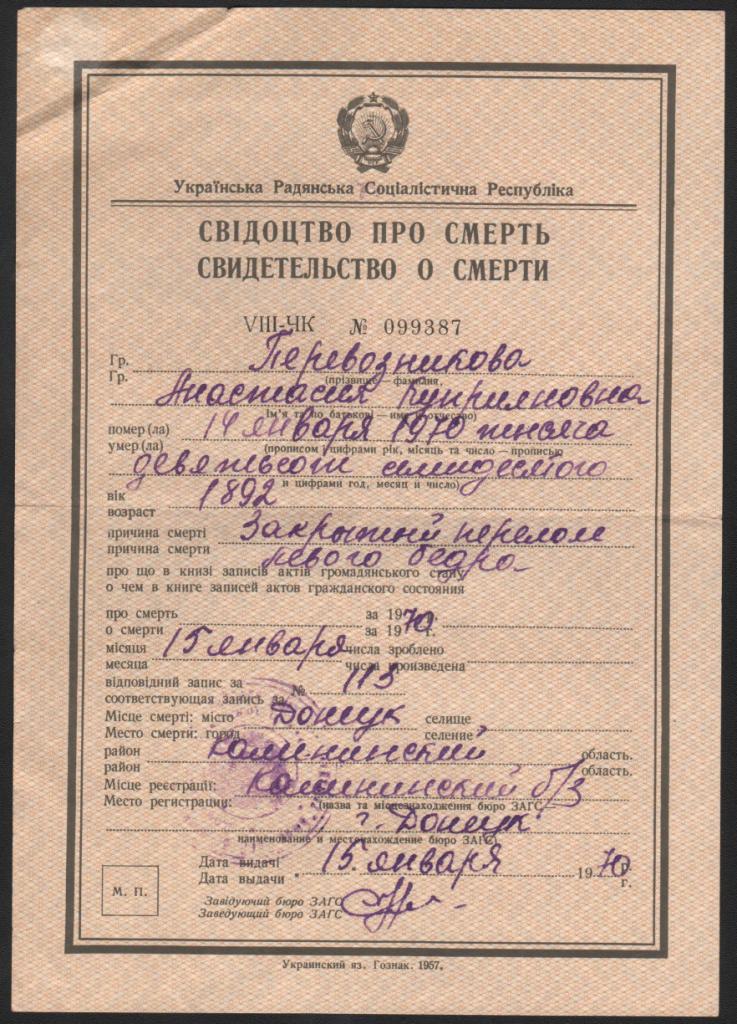 Українська Радянська Соціалістична Республіка
СВІДОЦТВО ПРО СМЕРТЬ
СВИДЕТЕЛЬСТВО О СМЕРТИ
VIII-ЧК № 099387
Гр. Перевозникова
Гр. (прізвище — фамилия,
Анастасия Куприяновна
Ім'я та по батькові — имя и отчество)
помер(ла) 14 января 1970 тысяча
умер(ла) (прописом і цифрами рік, місяць та число — прописью
девятьсот семидесятого
и цифрами год, месяц и число)
вік 1892
возраст
причина смерті Закрытый перелом
причина смерти левого бедра
про що в книзі записів актів громадянського стану
о чем в книге записей актов гражданского состояния
про смерть за 1970 р.
о смерти за 1970 г.
місяця 15 января числа зроблено
месяца числа произведена
відповідний запис за № 113
соответствующая запись за
Місце смерті: місто Донецк селище
Место смерти: город селение
район Калининский область.
район область.
Місце реєстрації: Калининский б/З
Место регистрации: (назва та місцезнаходження бюро ЗАГС —
г. Донецк
наименование и местонахождение бюро ЗАГС)
Дата видачі 15 января 1970 р.
Дата выдачи г.
М. П.
Завідуючий бюро ЗАГС
Заведующий бюро ЗАГС
Украинский яз. Гознак. 1967.